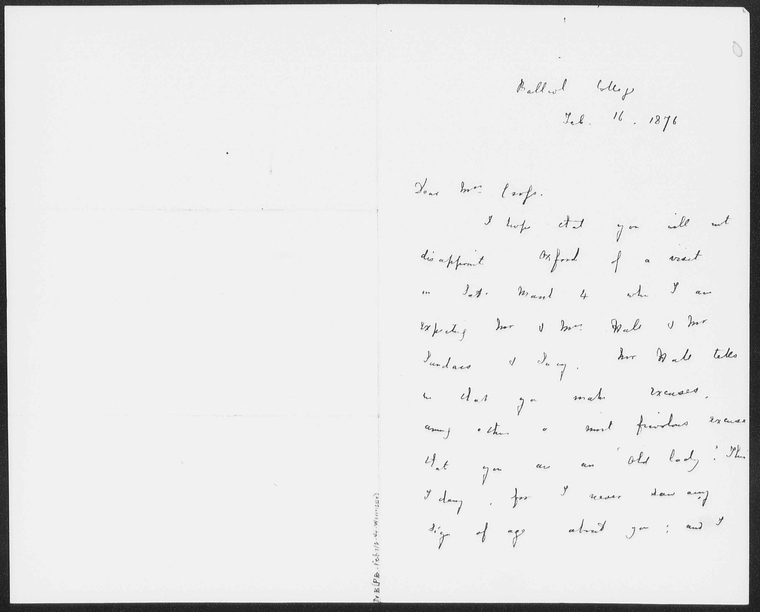 Balliol College
Feb. 16. 1876
Dear Mrs.
I hope that you will not
disappoint Oxford of a visit
on Sat. March 4 when I am
expecting Mr & Mrs. &
& Mr tells
me that you make excuses,
among others a most frivolous excuse
that you are an 'old lady'. This
I deny, for I never saw any
sign of age about you: and I